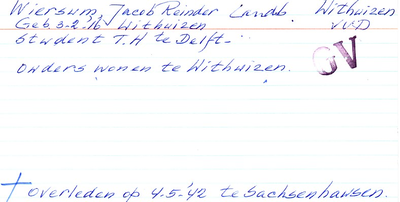 Wiersum, Jacob Reinder Landb. Withuizen
Geb. 3-2-'16 Withuizen V.V.D
Student T.H te Delft-
GV
Ouders wonen te Withuizen.
† overleden op 4-5-'42 te Sachsenhausen.